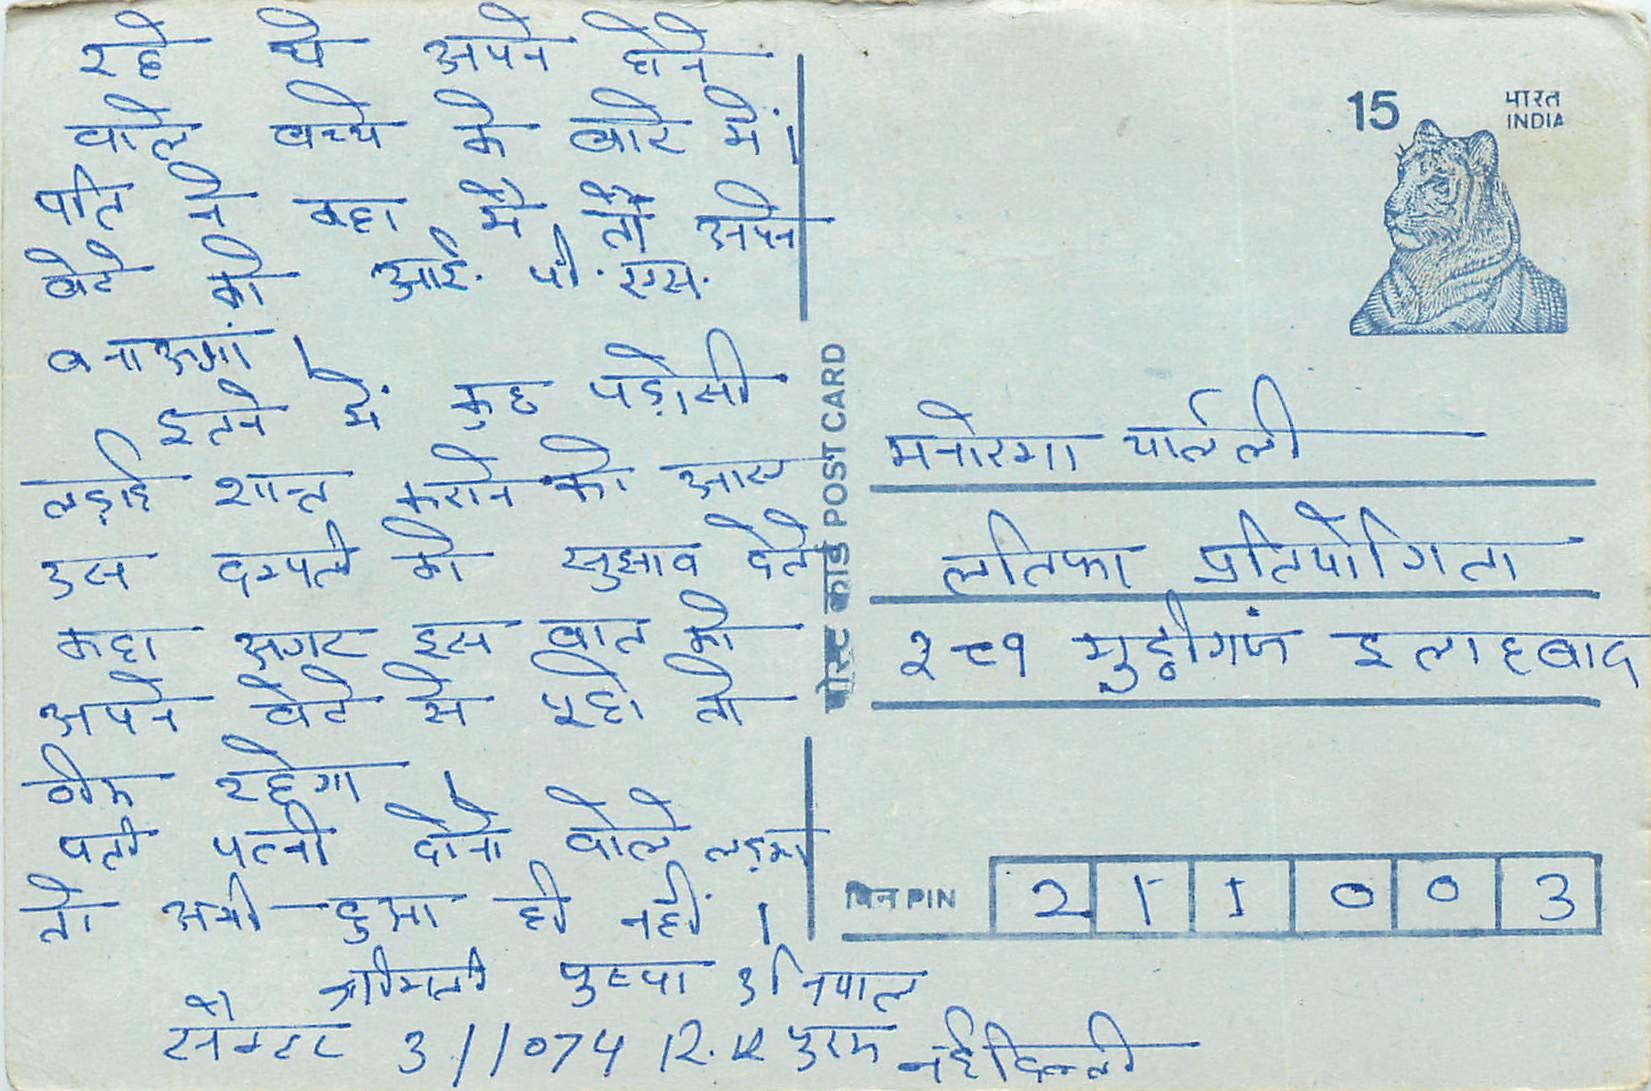 रहे थे अपने होने
वाले बच्चे के बारे में।
पति ने कहा मैं तो अपने
बेटे को आई. पी. एस.
बनाऊगां।
इतने में कुछ पड़ोसी
लड़ाई शान्त कराने को आए
उस दम्पति को सुझाव देते
कहा अगर इस बात को
अपने बेटे से पूछो तो
ठीक रहेगा।
पती पत्नी दोनो बोले लड़का
तो अभी हुआ ही नहीं।
श्रीमती पुष्पा
सैक्टर 3/1074 R.K पुरम नई दिल्ली
15 भारत
INDIA
पोस्ट कार्ड POST CARD
मनोरमा
लतिफा प्रतियोगिता
२८१ मुट्ठीगंज इलाहबाद
पिन PIN 211003